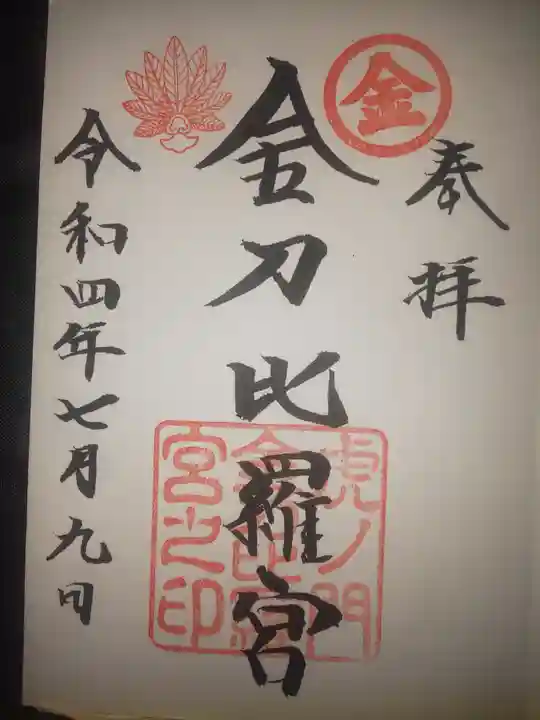 奉拝
金
金刀比羅宮
虎ノ門
金刀比羅
宮之印
令和四年七月九日